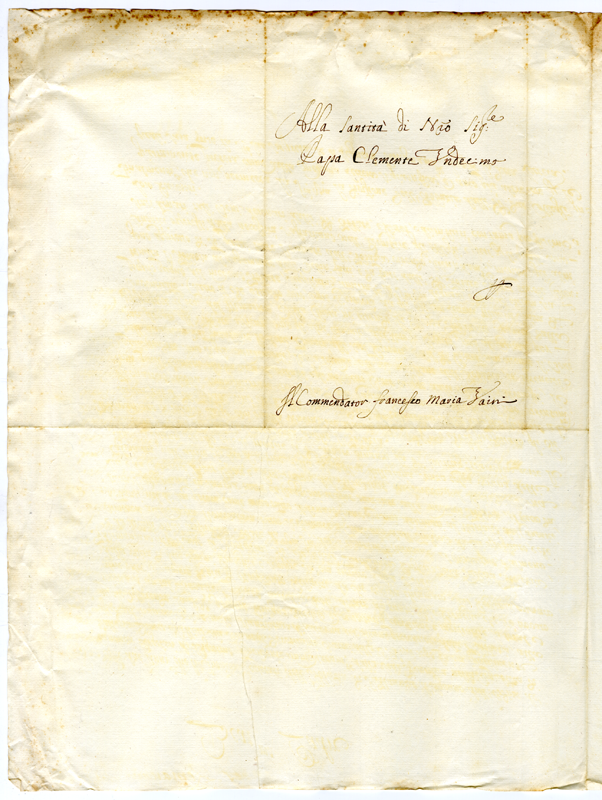 Alla Santità di Nr̃o Sig.re
Papa Clemente Vndecimo
Il Commendator francesco Maria